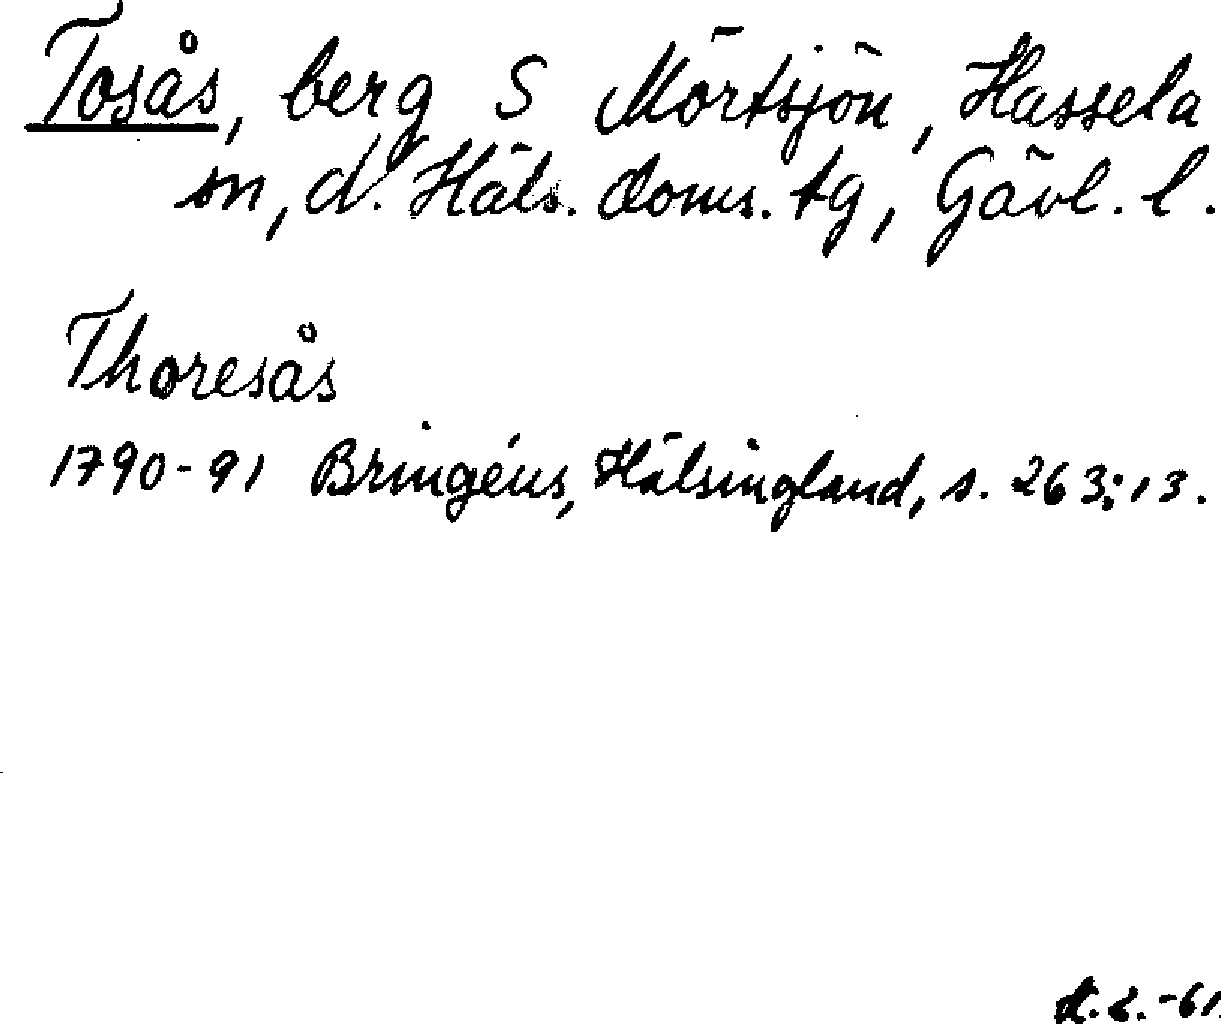 Tosås, berg S Mörtsjön, Hassela
sn, N. Häls. doms. tg, Gävl. l.
Thoresås
1790-91 Bringéus, Hälsingland, s. 263:13.
-61.